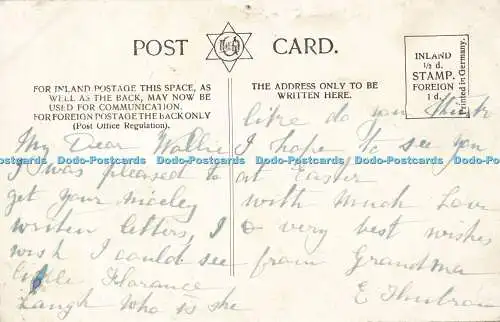 POST CARD.
FOR INLAND POSTAGE THIS SPACE, AS
WELL AS THE BACK, MAY NOW BE
USED FOR COMMUNICATION.
FOR FOREIGN POSTAGE THE BACK ONLY
(Post Office Regulation).
THE ADDRESS ONLY TO BE
WRITTEN HERE.
INLAND
½ d.
STAMP.
FOREIGN
1 d.
Printed in Germany.
My Dear Wallie
I was pleased to
get your niceley
writen letters, I
wish I could see
Florance
Laugh Who is she
like do you think
I hope to see you
at Easter
with Much Love
& very best wishes
from Grandma
E
Postcards Postcards Postcards Postcards Postcards Postcards